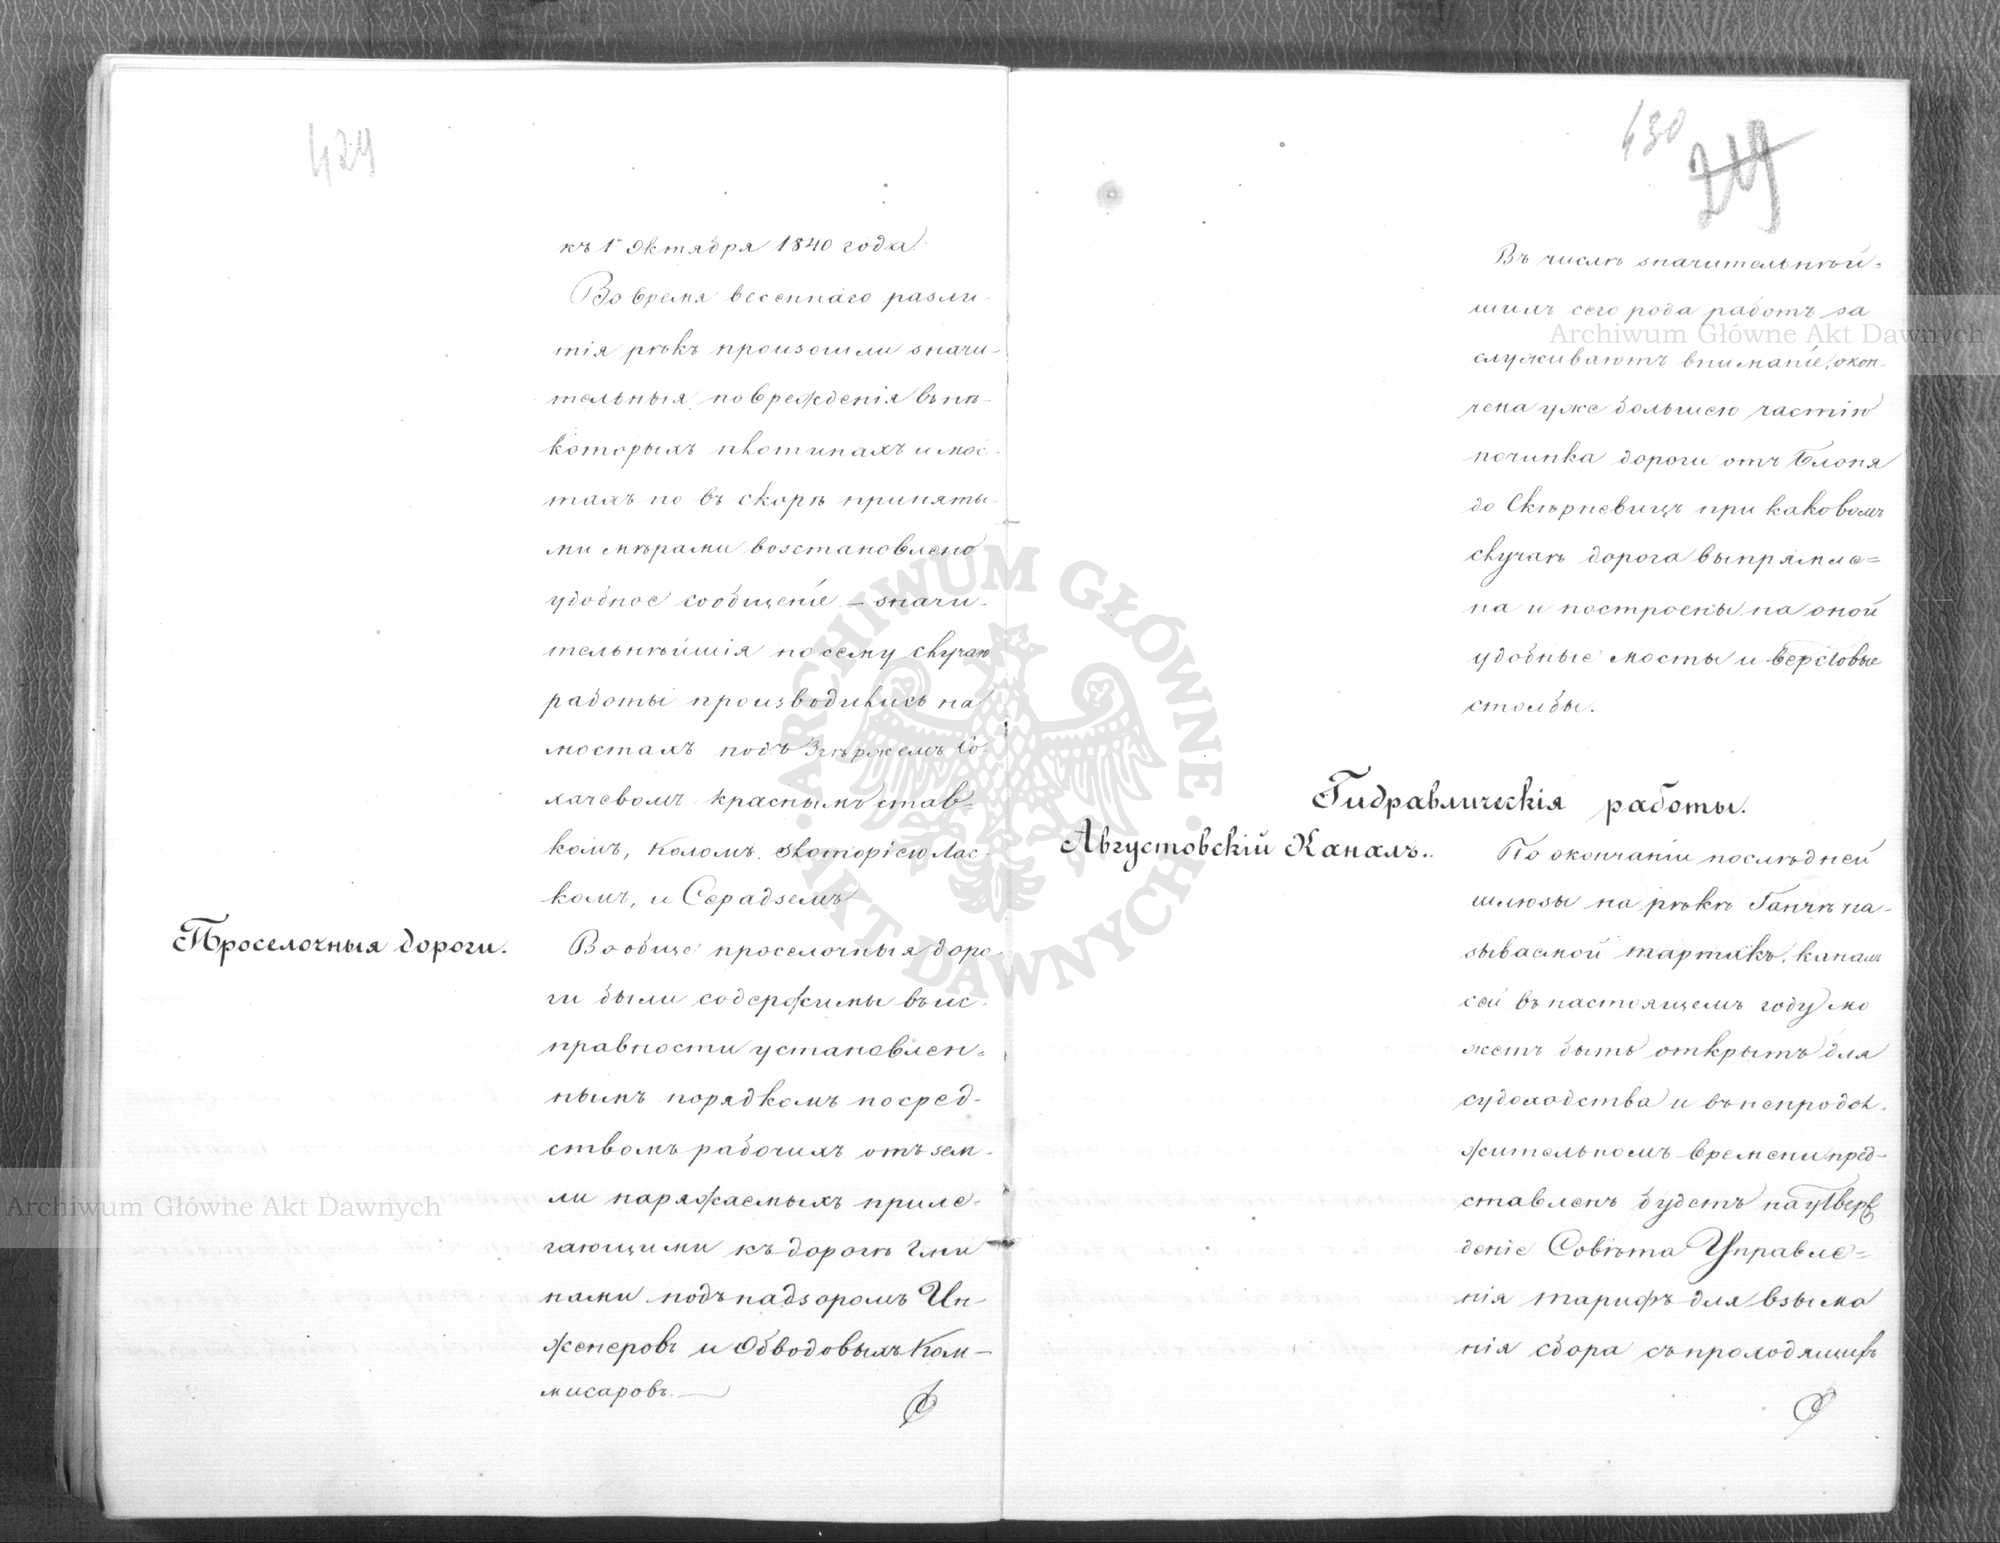 429
къ 1му Октября 1840 года.
Во время весеннаго разли-
тія рѣкъ произошли значи-
тельныя поврежденія въ нѣ-
которыхъ плотинахъ и мос-
тахъ но въ скорѣ приняты-
ми мѣрами возстановлено
удобное сообщеніе – значи-
тельнѣйшія по сему случаю
работы производились на
мостахъ подъ Згѣржемъ Со-
хачевомъ Краснымъставъ-
комъ, Коломъ, Злоторіею Лас-
комъ, и Серадземъ
Проселочныя дороги.
Вообще проселочныя доро-
ги были содержимы въ ис-
правности установлен-
нымъ порядкомъ посред-
ствомъ рабочихъ отъ зем-
ли наряжаемыхъ приле-
гающими къ дорогѣ Гми
нами подъ надзоромъ Ин-
женеровъ и Обводовыхъ Ком-
мисаровъ. —
430
219
Въ числѣ значительнѣй-
шихъ сего рода работъ за
служиваютъ вниманіе, окон-
чена уже большею частію
починка дороги отъ Блоня
до Скѣрневицъ при каковомъ
случаѣ дорога выпрямле=
на и построены на оной
удобные мосты и верстовые
столбы.
Гидравлическія работы.
Августовскій Каналъ..
По окончаніи послѣдней
шлюзы на рѣкѣ Ганчѣ на-
зываемой тартакъ, каналъ
сей въ настоящемъ году мо
жетъ быть открытъ для
судоходства и въ непродол-
жительномъ времени пред-
ставленъ будетъ на утверж
деніе Совѣта Управле=
нія тарифъ для взыма
нія сбора съ проходящихъ
Archiwum Główne Akt Dawnych
Archiwum Główne Akt Dawnych
ARCHIWUM GŁÓWNE AKT DAWNYCH